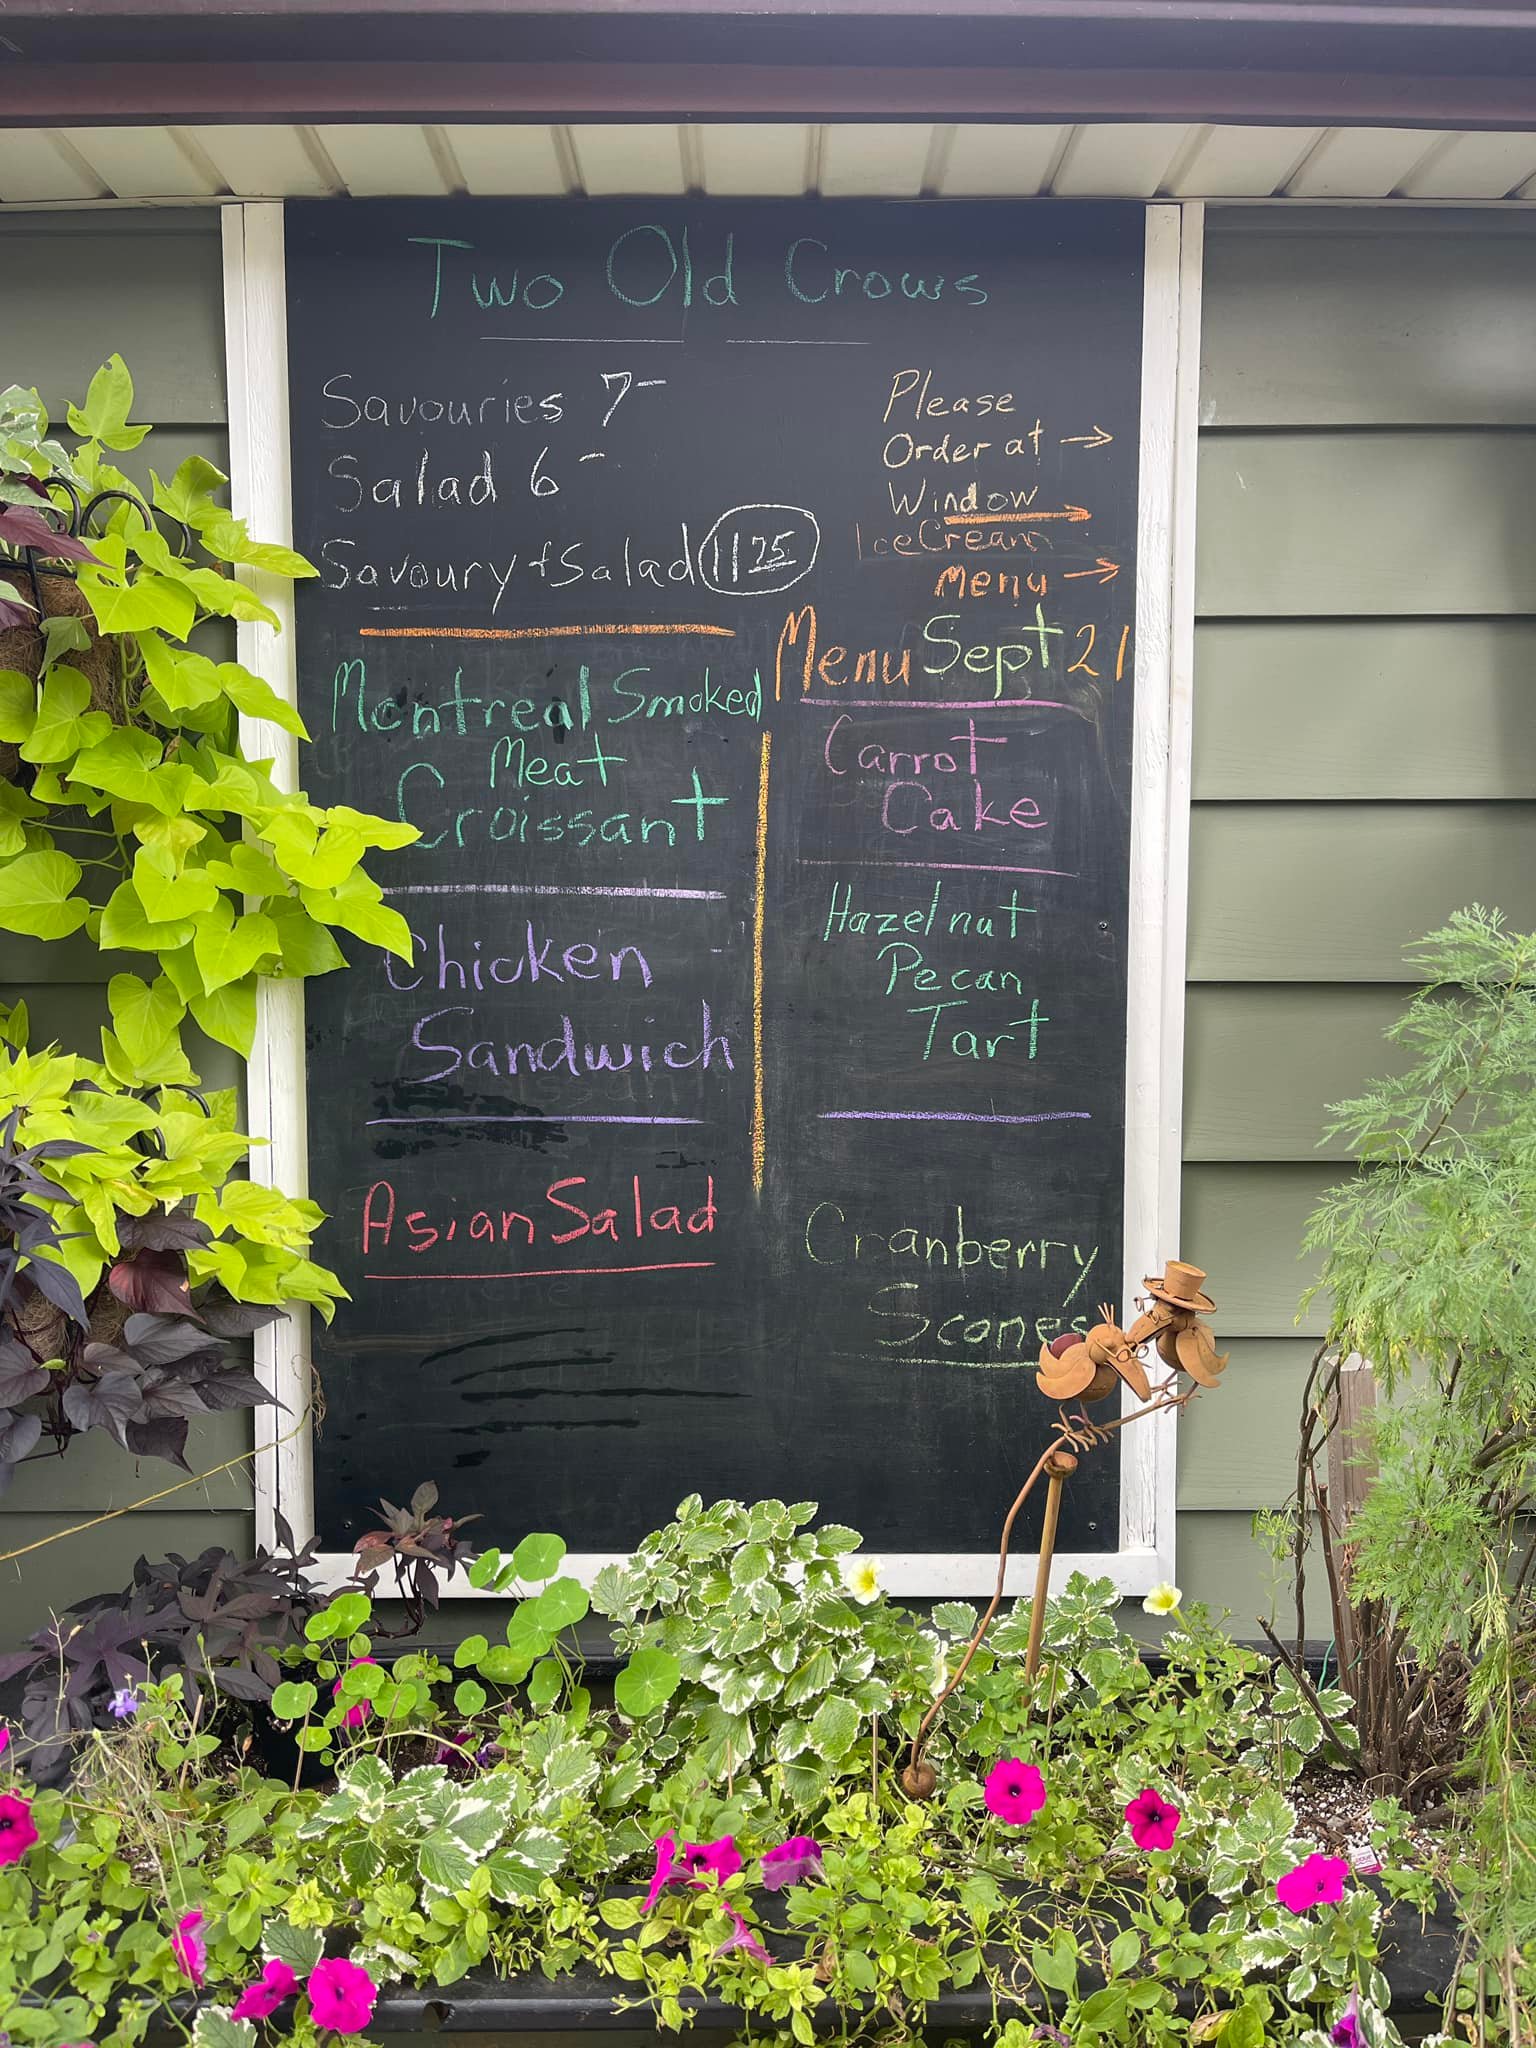 Two Old Crows
Savouries 7-
Salad 6-
Savoury + Salad 11 75
Please
Order at →
Window
Ice Cream
Menu →
Menu Sept 21
Montreal Smoked
Meat
Croissant
Chicken
Sandwich
Asian Salad
Carrot
Cake
Hazelnut
Pecan
Tart
Cranberry
Scones